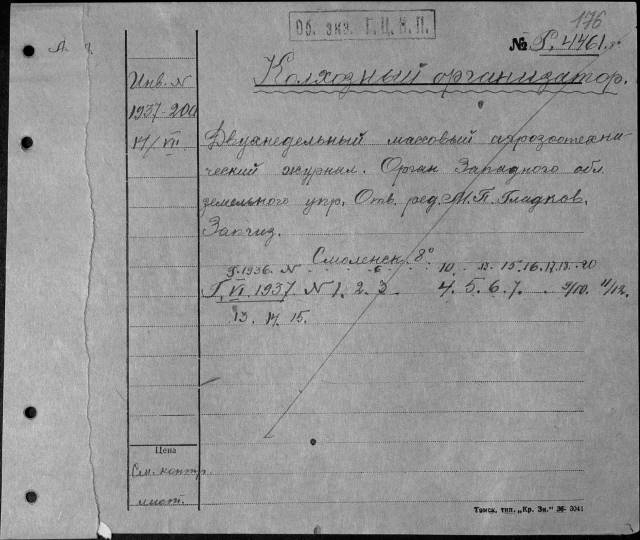 176
Об. экз. Г.Ц.К.П.
№ Р. 4461
Колхозный организатор.
Инв. N
1937-200
14/VII
Двухнедельный массовый агрозоотехни-
ческий журнал. Орган Западного обл.
земельного упр. Отв. ред. М.П. Гладков.
Запгиз.
Смоленск 8°
Г. 1936. N 6 10 13. 15. 16. 17. 18. 20
Г. VI. 1937 N 1. 2. 3. 4. 5. 6. 7. 9/10. 11/12.
13. 14. 15.
Цена
См. контр.
лист.
Томск, тип. „Кр. Зн." 36- 3041